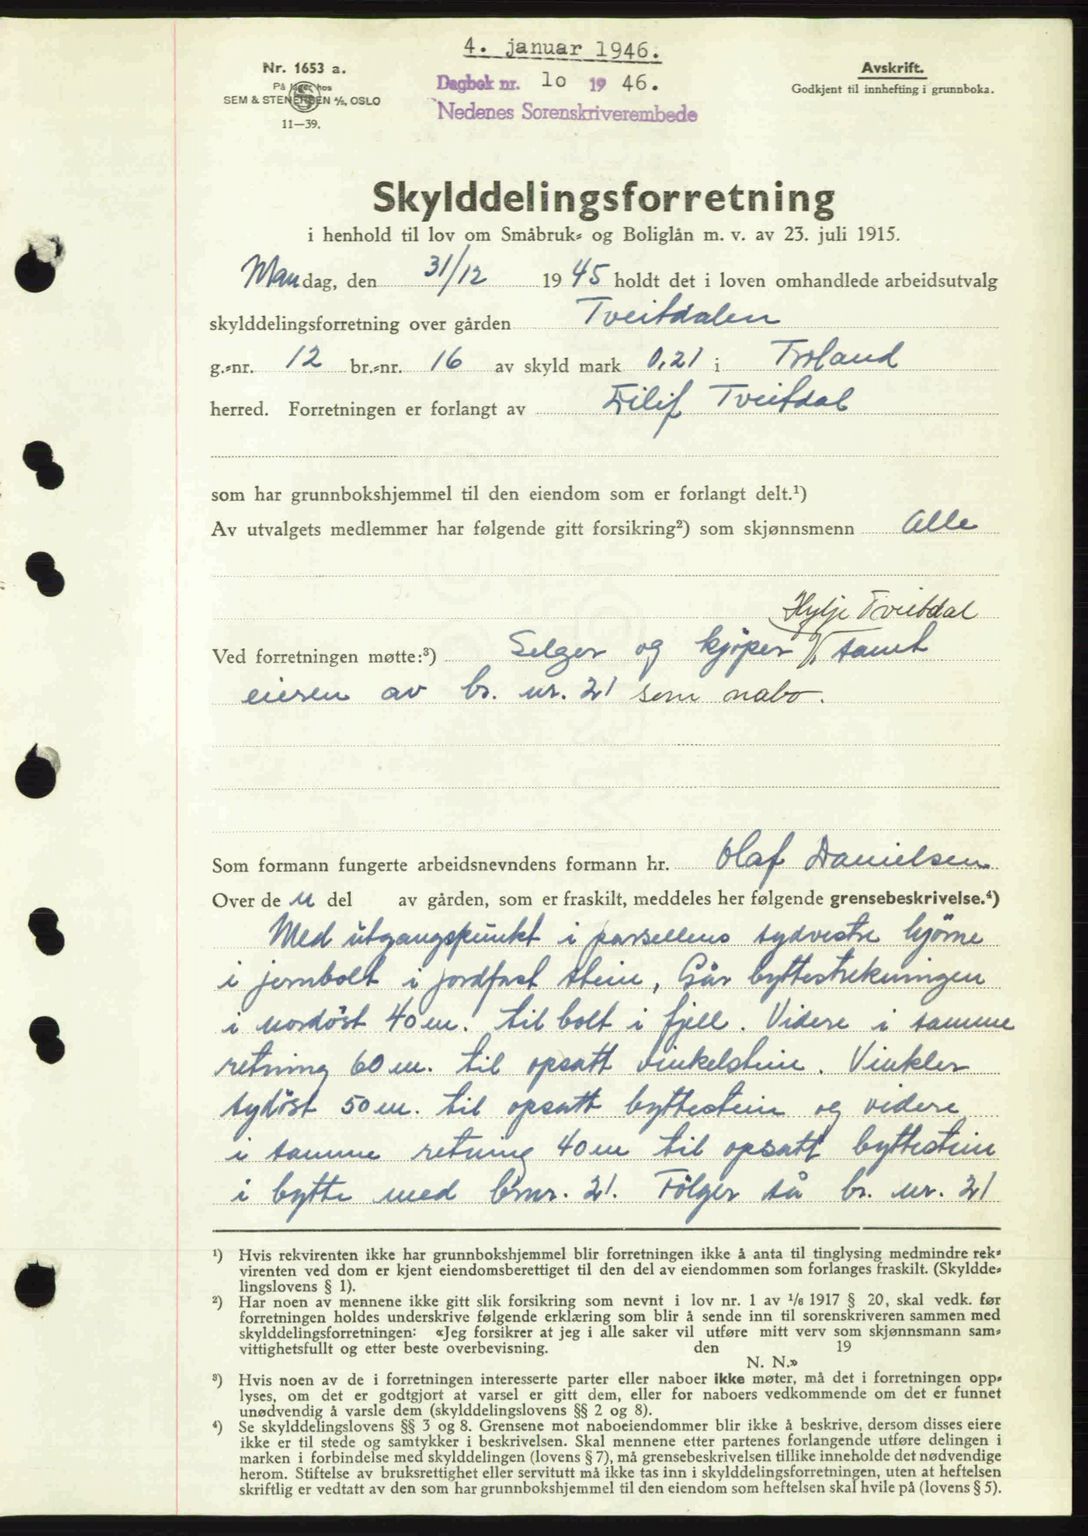 4. januar 1946.
Nr. 1653 a.
På lager hos
SEM & STENERSEN A/S, OSLO
11—39.
Dagbok nr. 10 1946.
Nedenes Sorenskriverembede
Avskrift.
Godkjent til innhefting i grunnboka.
Skylddelingsforretning
i henhold til lov om Småbruk- og Boliglån m. v. av 23. juli 1915.
Mandag, den 31/12 1945 holdt det i loven omhandlede arbeidsutvalg
skylddelingsforretning over gården Tveitdalen
g.-nr. 12 br.-nr. 16 av skyld mark 0,21 i Froland
herred. Forretningen er forlangt av Eilif Tveitdal
som har grunnbokshjemmel til den eiendom som er forlangt delt.¹)
Av utvalgets medlemmer har følgende gitt forsikring²) som skjønnsmenn Alle
Tveitdal
Ved forretningen møtte:³) Selger og kjøper samt
eieren av br. nr. 21 som nabo.
Som formann fungerte arbeidsnevndens formann hr. Olaf Danielsen
Over de n del av gården, som er fraskilt, meddeles her følgende grensebeskrivelse.⁴)
Med utgangspunkt i parsellens sydvestre hjørne
i jernbolt i jordfast stein, Går byttestrekningen
i nordöst 40 m. til bolt i fjell. Videre i samme
retning 60 m. til opsatt vinkelstein. Vinkler
sydöst 50 m. til opsatt byttestein og videre
i samme retning 40 m til opsatt byttestein
i bytte med brnr. 21. Fölger så br. nr. 21
¹) Hvis rekvirenten ikke har grunnbokshjemmel blir forretningen ikke å anta til tinglysing medmindre rek-
virenten ved dom er kjent eiendomsberettiget til den del av eiendommen som forlanges fraskilt. (Skyldde-
lingslovens § 1).
²) Har noen av mennene ikke gitt slik forsikring som nevnt i lov nr. 1 av 1/6 1917 § 20, skal vedk. før
forretningen holdes underskrive følgende erklæring som blir å sende inn til sorenskriveren sammen med
skylddelingsforretningen: «Jeg forsikrer at jeg i alle saker vil utføre mitt verv som skjønnsmann sam-
vittighetsfullt og etter beste overbevisning. den 19
N. N.»
³) Hvis noen av de i forretningen interesserte parter eller naboer ikke møter, må det i forretningen opp-
lyses, om det er godtgjort at varsel er gitt dem, eller for naboers vedkommende om det er funnet
unødvendig å varsle dem (skylddelingslovens §§ 2 og 8).
⁴) Se skylddelingslovens §§ 3 og 8. Grensene mot naboeiendommer blir ikke å beskrive, dersom disses eiere
ikke er til stede og samtykker i beskrivelsen. Skal mennene etter partenes forlangende utføre delingen i
marken i forbindelse med skylddelingen (lovens § 7), må grensebeskrivelsen tillike inneholde det nødvendige
herom. Stiftelse av bruksrettighet eller servitutt må ikke tas inn i skylddelingsforretningen, uten at heftelsen
skriftlig er vedtatt av den som har grunnbokshjemmel til den eiendom som heftelsen skal hvile på (lovens § 5).